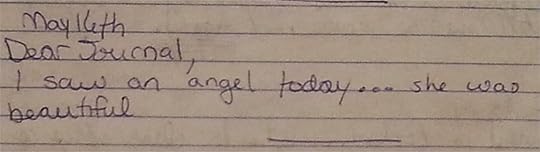 May 16th
Dear Journal,
I saw an angel today... she was
beautiful